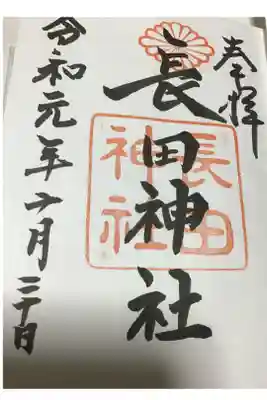 奉拝
長田神社
長田
神社
令和元年十月三十日